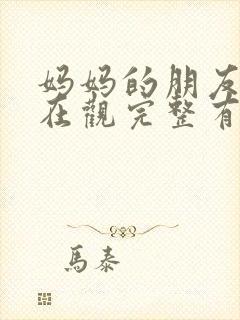 妈妈的朋友
在觀完整有
馬泰